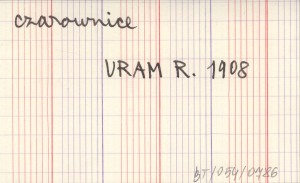 czarownice
VRAM R. 1908
BT/054/0786